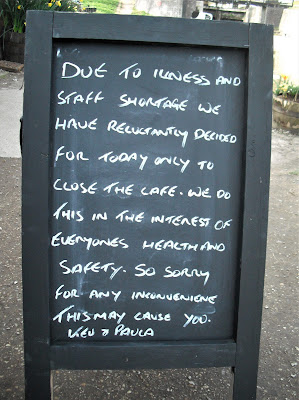 DUE TO ILLNESS AND
STAFF SHORTAGE WE
HAVE RELUCTANTLY DECIDED
FOR TODAY ONLY TO
CLOSE THE CAFE. WE DO
THIS IN THE INTEREST OF
EVERYONES HEALTH AND
SAFETY. SO SORRY
FOR ANY INCONVENIENE
THIS MAY CAUSE YOU.
KEV & PAULA